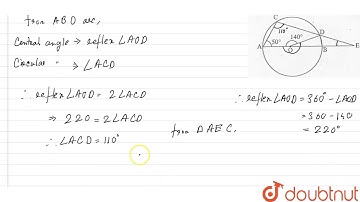 from ABD arc,
Central angle → reflex ∠AOD
Circular " → ∠ACD
∴ reflex ∠AOD = 2∠ACD
⇒ 220 = 2∠ACD
∴ ∠ACD = 110°
from △AEC,
∴ reflex ∠AOD = 360° - ∠AOD
= 360 - 140
= 220°
C
110°
D
A
50°
140°
O
B
E
doubtnut